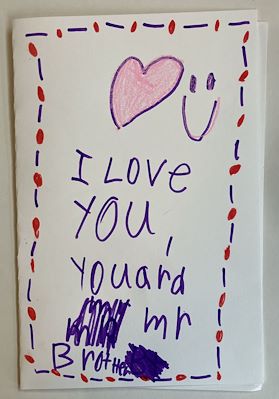 I Love
YOU,
Youard
mr
Brother